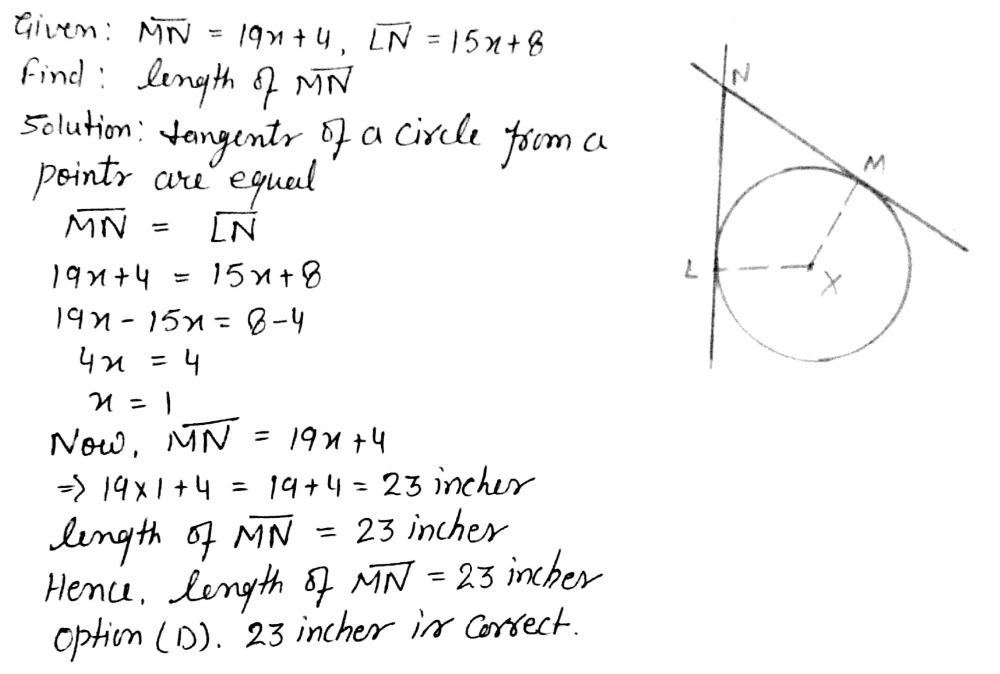 Given: MN = 19x + 4, LN = 15x + 8
Find: length of MN
Solution: tangents of a circle from a
points are equal
MN = LN
19x + 4 = 15x + 8
19x - 15x = 8 - 4
4x = 4
x = 1
Now, MN = 19x + 4
=> 19 x 1 + 4 = 19 + 4 = 23 inches
length of MN = 23 inches
Hence, length of MN = 23 inches
Option (D). 23 inches is correct.
N
M
L
X